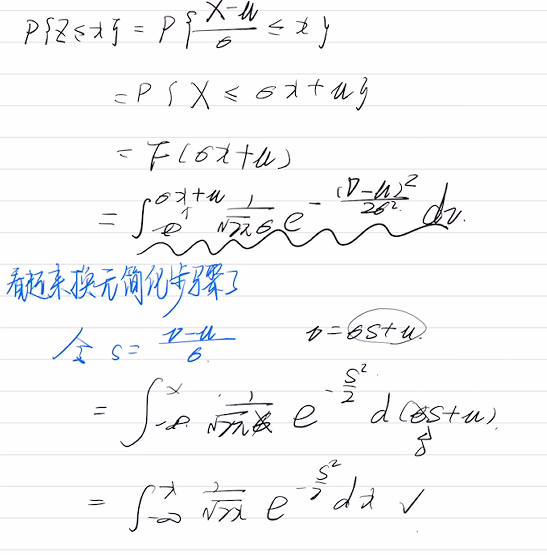 P{Z≤x} = P{(X-μ)/σ ≤ x}
= P{X ≤ σx+μ}
= F(σx+μ)
= ∫_{-∞}^{σx+μ} 1/(√2π σ) e^{-(v-μ)²/(2σ²)} dv.
看起来换元简化步骤了
令 s = (v-μ)/σ. v = σs+μ.
= ∫_{-∞}^{x} 1/(√2π σ) e^{-s²/2} d(σs+μ).
= ∫_{-∞}^{x} 1/√2π e^{-s²/2} dx ✓